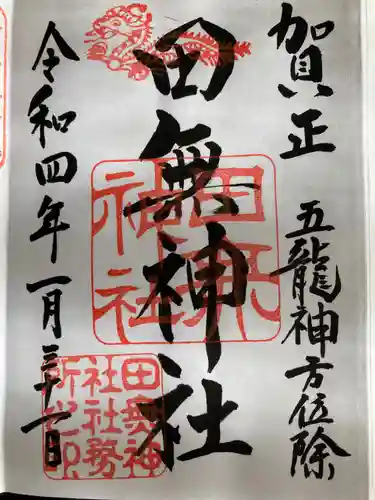 賀正
五龍神方位除
田無神社
令和四年一月三十一日
田無神社
田無神社社務所之印